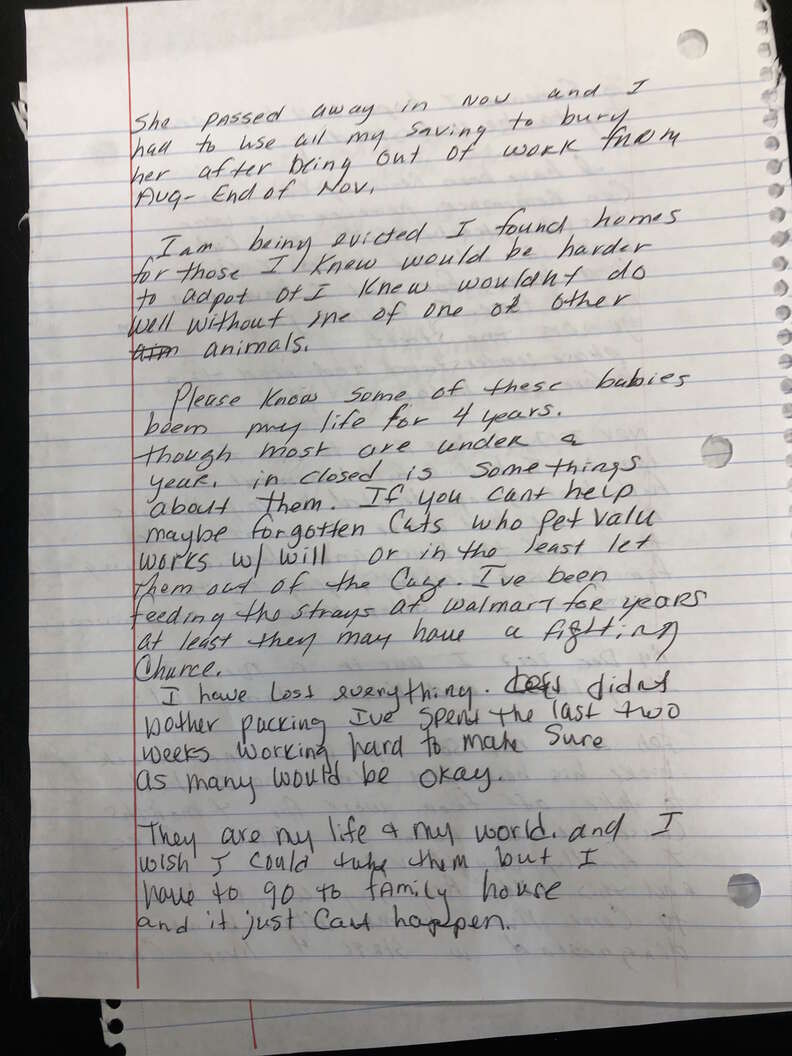 She passed away in Nov and I
had to use all my saving to bury
her after being out of work from
Aug - End of Nov.
I am being evicted I found homes
for those I knew would be harder
to adpot or I knew wouldnt do
well without me of one of other
animals.
Please know some of these babies
been my life for 4 years.
though most are under a
year. in closed is some things
about them. If you cant help
maybe forgotten Cats who Pet Valu
works w/ will or in the least let
them out of the Cage. I've been
feeding the strays at Walmart for years
at least they may have a fighting
Chance.
I have loss everything. didnt
bother packing I've spent the last two
weeks working hard to make Sure
as many would be okay.
They are my life & my world. and I
wish I could take them but I
have to go to family house
and it just Cant happen.